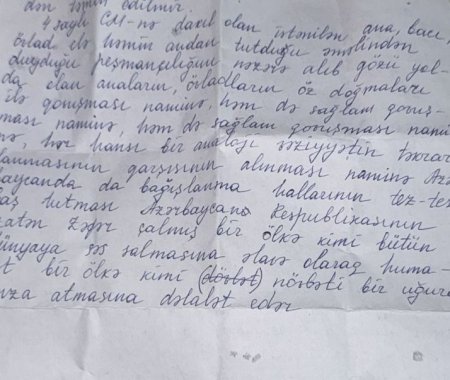 dən təmin edilmir.
4 saylı CM-nə daxil olan istənilən ana, bacı,
övlad ilə həmin andan tutduğu əməlindən
duyduğu peşmançılığını nəzərə alıb gözü yol-
da olan anaların, övladların öz doğmaları
ilə qovuşması naminə, həm də sağlam qovuş-
ması naminə, həm də sağlam qovuşması nami
nə, hər hansı bir analoji vəziyyətin təkrar
lanmasının qarşısının alınması naminə Azə
baycanda da bağışlanma hallarının tez-tez
baş tutması Azərbaycan Respublikasının
zatən zəfər çalmış bir ölkə kimi bütün
dünyaya səs salmasına əlavə olaraq huma-
t bir ölkə kimi (dövlət) növbəti bir uğura
imza atmasına dəlalət edər